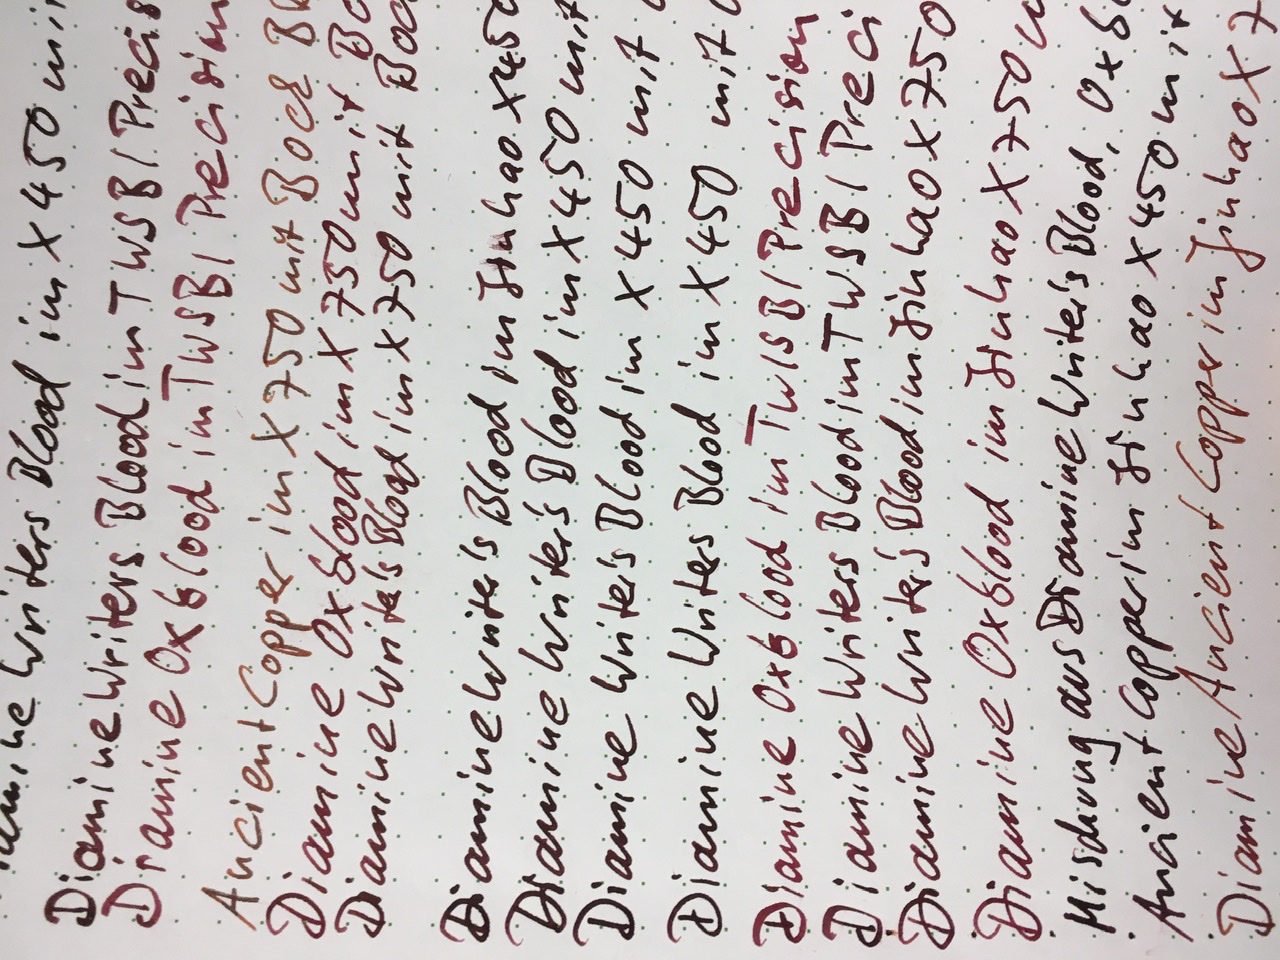 Writers Blood im X450 mit
Diamine Writers Blood im TWSBI Precis
Diamine Oxblood im TWSBI Precision
Ancient Copper im X750 mit Bock
Diamine Oxblood im X750 mit
Diamine Write's Blood im X750 mit Boc
Diamine Write's Blood im Jinhao X450
Diamine Writer's Blood im X450 mit
Diamine Write's Blood im X450 mit
Diamine Writers Blood im X450 mit
Diamine Oxblood im TWSBI Precision
Diamine Writers Blood im TWSBI Preci
Diamine Write's Blood im Jinhao X750
Diamine Oxblood im Jinhao X750
Mischung aus Diamine Write's Blood, Oxb
Ancient Copper im Jinhao X450 mit
Diamine Ancient Copper im Jinhao X7